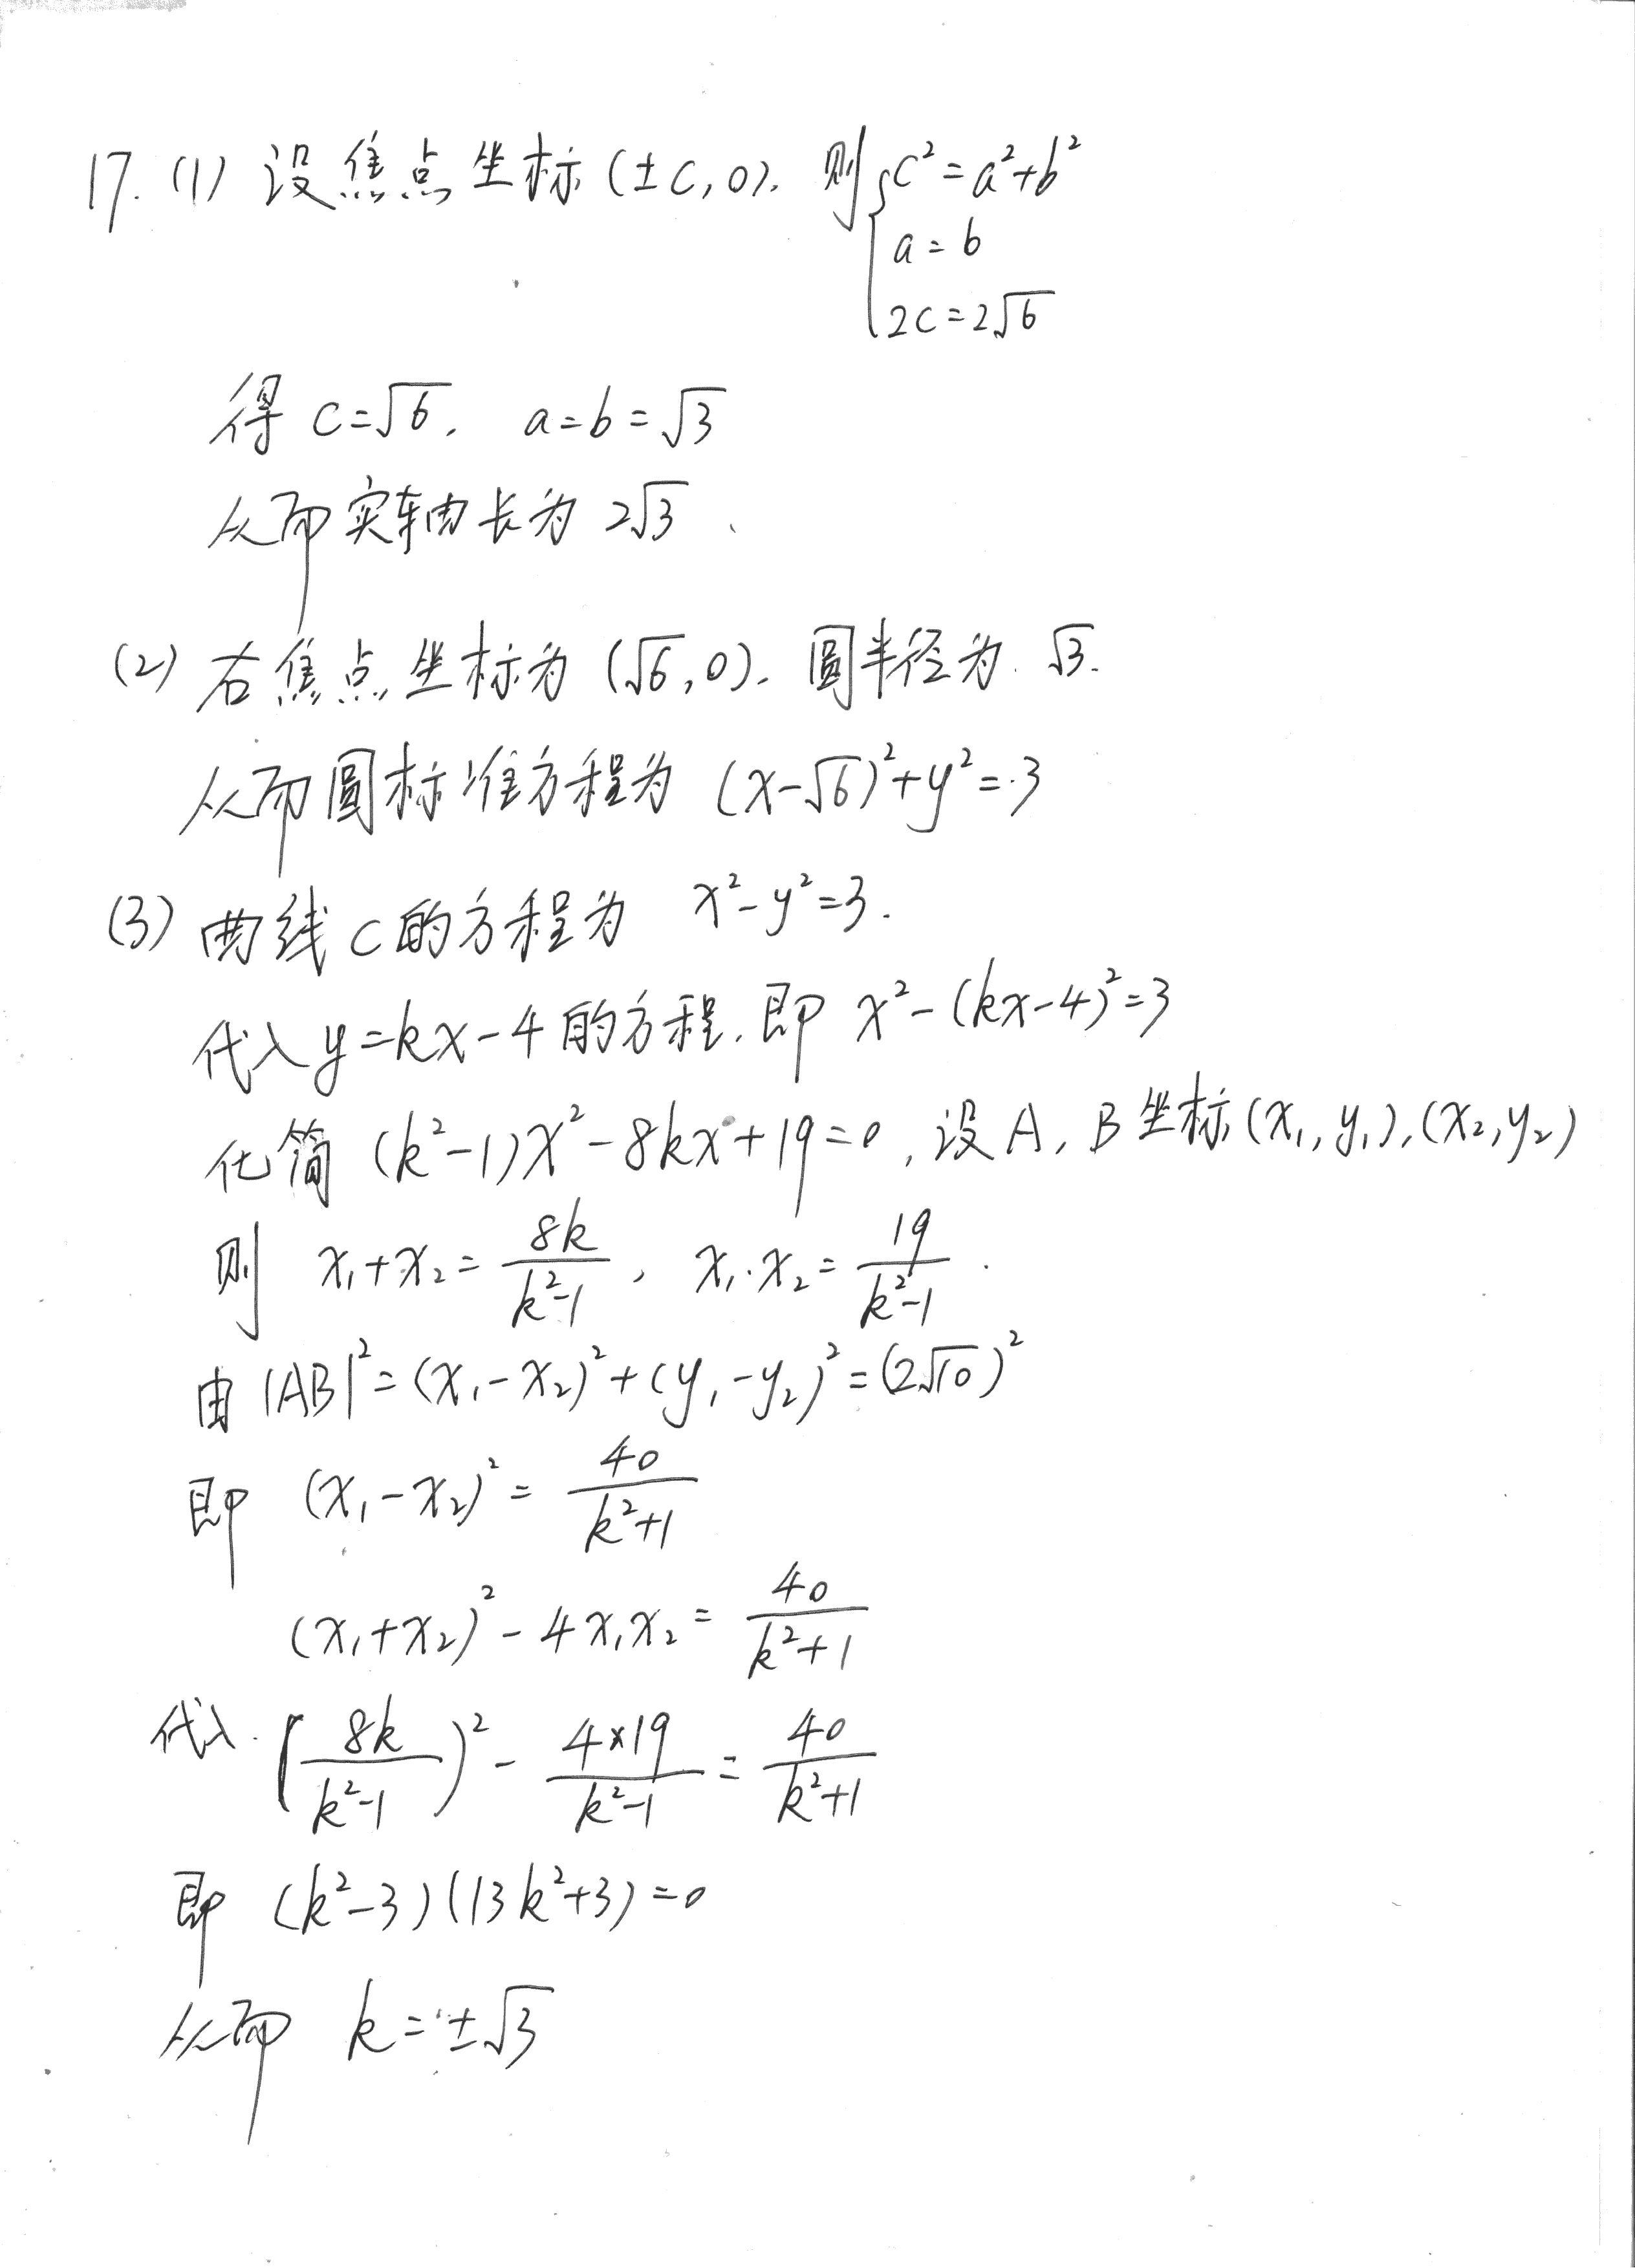 17. (1) 设焦点坐标(±c,0). 则{c²=a²+b²
a=b
2c=2√6
得 c=√6. a=b=√3
从而实轴长为 2√3、
(2) 右焦点坐标为(√6,0). 圆半径为 √3.
从而圆标准方程为 (x-√6)²+y²=3
(3) 曲线C的方程为 x²-y²=3.
代入y=kx-4的方程.即 x²-(kx-4)²=3
化简 (k²-1)x²-8kx+19=0,设A,B坐标(x₁,y₁),(x₂,y₂)
则 x₁+x₂=8k/(k²-1), x₁·x₂=19/(k²-1).
由|AB|²=(x₁-x₂)²+(y₁-y₂)²=(2√10)²
即 (x₁-x₂)²=40/(k²+1)
(x₁+x₂)²-4x₁x₂=40/(k²+1)
代入.(8k/(k²-1))²-4×19/(k²-1)=40/(k²+1)
即 (k²-3)(13k²+3)=0
从而 k=±√3